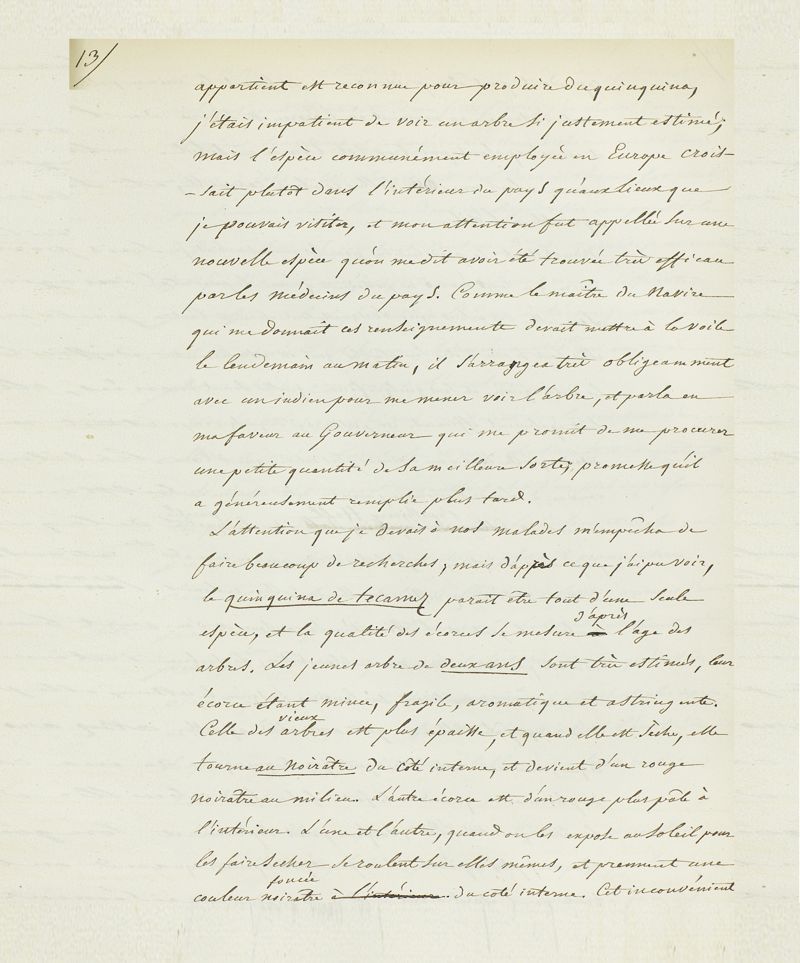 13/
appartient est reconnue pour produire du quinquina,
j'étais impatient de voir un arbre si justement estimé;
mais l'espèce communément employée en Europe crois-
-sait plutôt dans l'intérieur du pays qu'aux lieux que
je pouvais visiter, et mon attention fut appellée sur une
nouvelle espèce qu'on me dit avoir été trouvée très efficau
par les médecins du pays. Comme le maître du Navire
qui me donnait ces renseignements devait mettre à la voile
le lendemain au matin, il s'arrangea très obligeamment
avec un indien pour me mener voir l'arbre, et parla en
ma faveur au Gouverneur qui me promit de me procurer
une petite quantité de la meilleure sorte, promesse qu'il
a généreusement remplie plus tard.
L'attention que je devais à nos malades m'empêcha de
faire beaucoup de recherches, mais d'après ce que j'ai pu voir,
le quinquina de tecamez parait être tout d'une seule
d'après
espèce, et la qualité des écorces se mesure l'age des
arbres. Les jeunes arbre de deux ans sont très estimés, leur
écorce étant mince, fragile, aromatique et astringente.
vieux
Celle des arbres est plus épaisse, et quand elle est sèche, elle
tourne au noirâtre du côté interne, et devient d'un rouge
noirâtre au milieu. L'autre écorce est d'un rouge plus pâle à
l'intérieur. L'une et l'autre, quand on les expose au soleil pour
les faire secher se roulent sur elles mêmes, et prennent une
foncée
couleur noirâtre à l'intérieur. du coté interne. Cet inconvénient